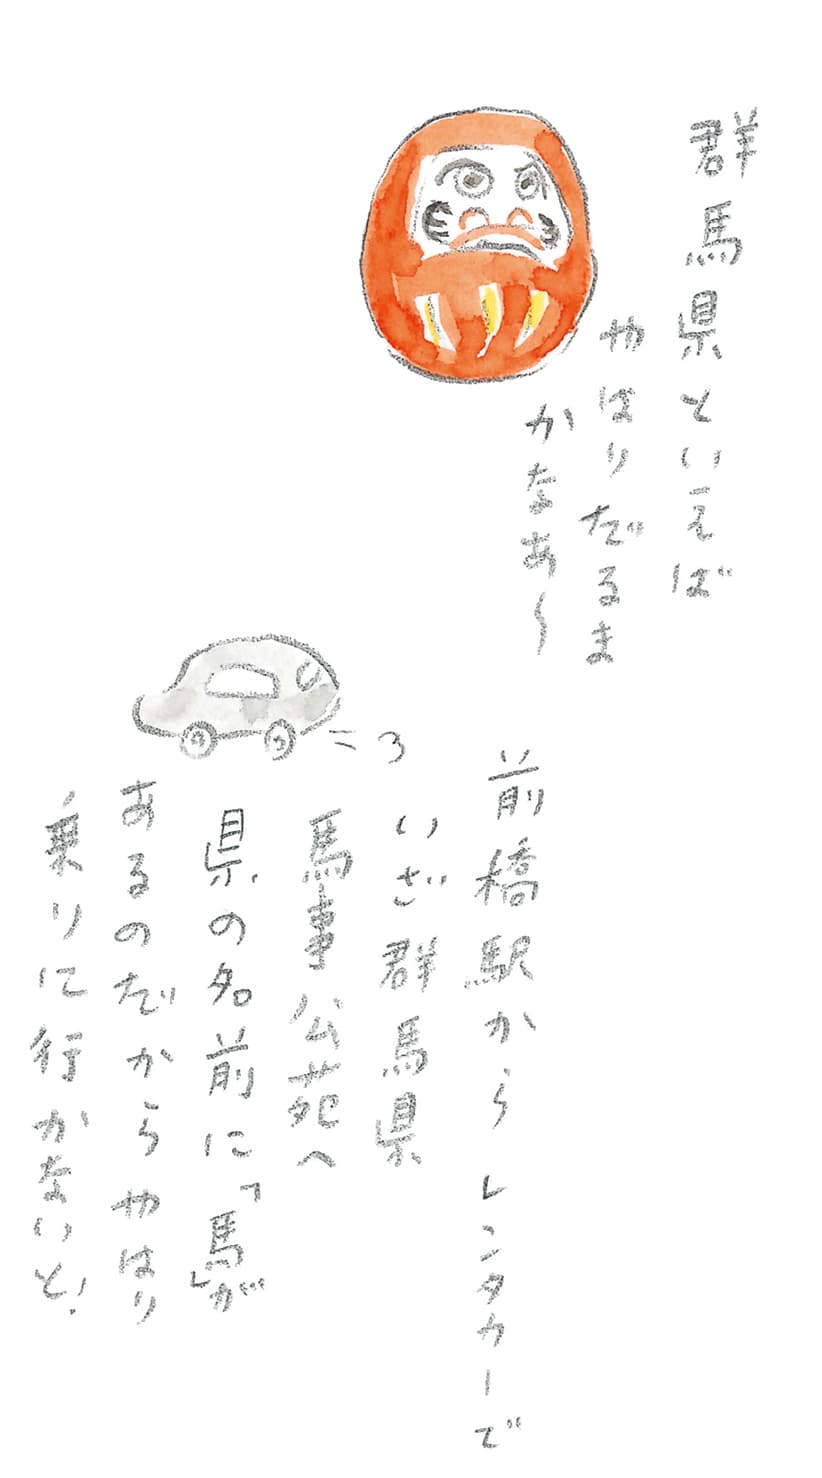 群馬県といえば
やはりだるま
かなあ〜
前橋駅からレンタカーで
いざ群馬県
馬事公苑へ
県の名前に「馬」が
あるのだからやはり
乗りに行かないと!